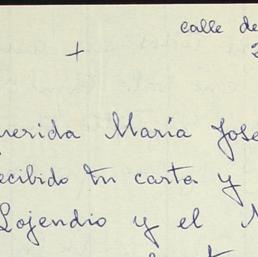 calle de
+
uerida María José
ecibido tu carta y
Lojendio y el